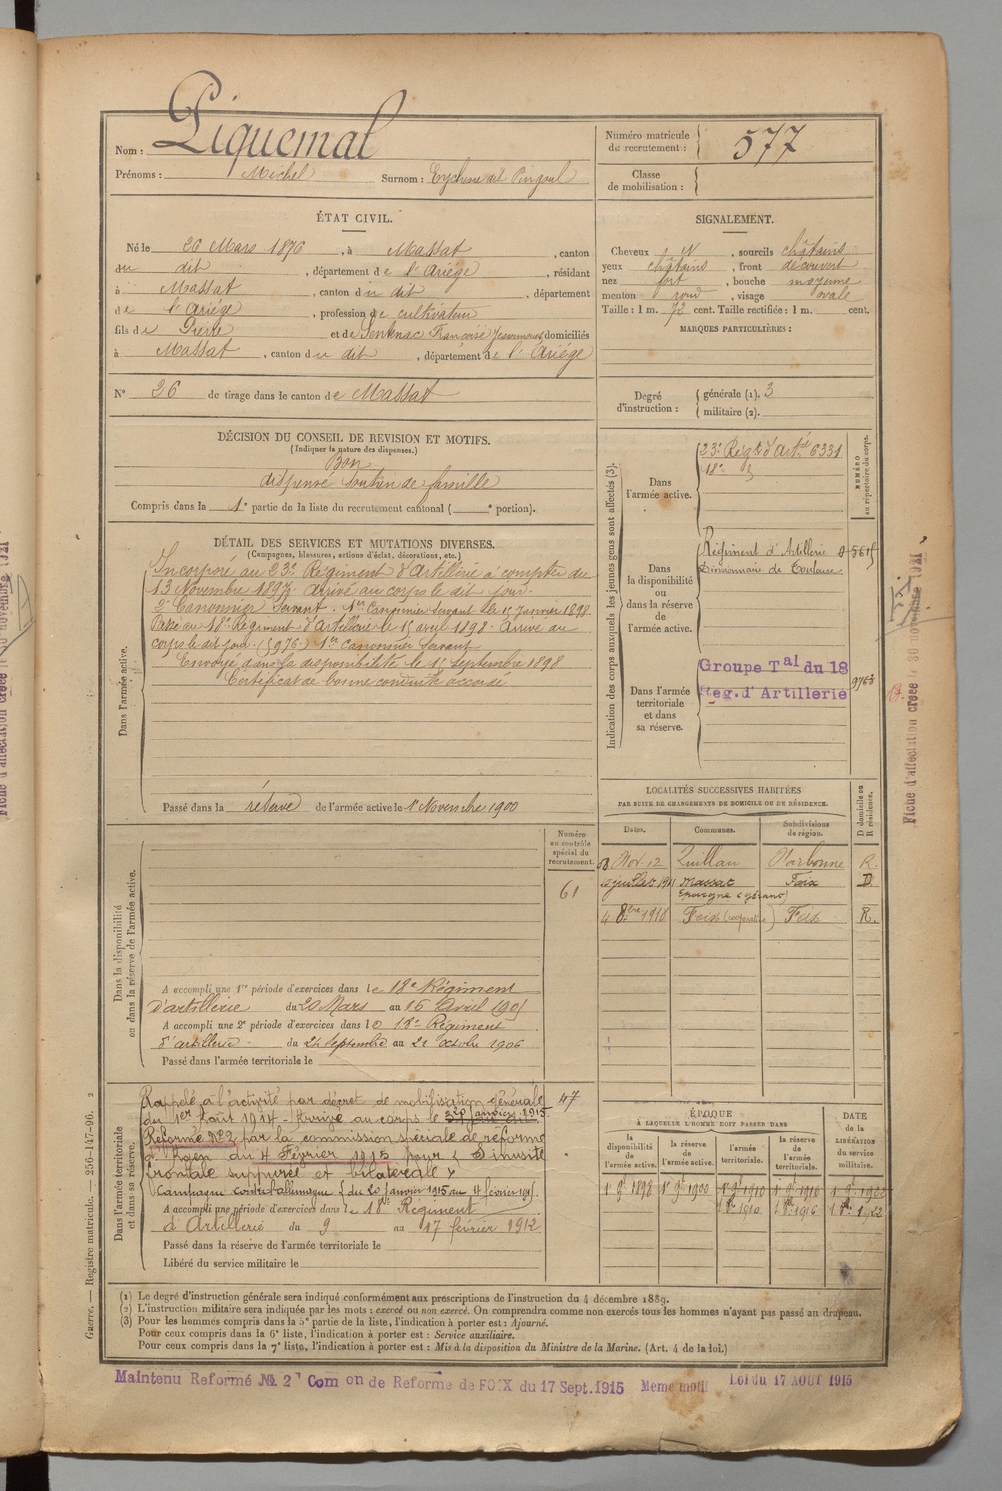 Nom : Piquemal
Prénoms : Michel Surnom : dit
Numéro matricule de recrutement : 577
Classe de mobilisation :
ÉTAT CIVIL.
Né le 26 Mars 1876, à Massat, canton
du dit, département de l'Ariége, résidant
à Massat, canton du dit, département
de l'Ariége, profession de cultivateur
fils de Pierre et de Sentenac Françoise domiciliés
à Massat, canton du dit, département de l'Ariége
N° 26 de tirage dans le canton de Massat
SIGNALEMENT.
Cheveux N, sourcils châtains
yeux châtains, front découvert
nez fort, bouche moyenne
menton rond, visage ovale
Taille : 1 m. 72 cent. Taille rectifiée : 1 m. cent.
MARQUES PARTICULIÈRES :
Degré d'instruction :
générale (1). 3
militaire (2).
DÉCISION DU CONSEIL DE REVISION ET MOTIFS.
(Indiquer la nature des dispenses.)
Bon
dispensé soutien de famille
Compris dans la 1e partie de la liste du recrutement cantonal ( e portion).
DÉTAIL DES SERVICES ET MUTATIONS DIVERSES.
(Campagnes, blessures, actions d'éclat, décorations, etc.)
Dans l'armée active.
Incorporé au 23e Régiment d'Artillerie à compter du
13 Novembre 1897. Arrivé au corps le dit jour.
2e Canonnier Servant. 1er Canonnier Servant le 15 Janvier 1898.
Passé au 18e Régiment d'Artillerie le 15 avril 1898. Arrivé au
corps le dit jour. (5976) 1er Canonnier Servant
Envoyé dans la disponibilité le 15 Septembre 1898
Certificat de bonne conduite accordé
Passé dans la réserve de l'armée active le 1er Novembre 1900
Indication des corps auxquels les jeunes gens sont affectés (3).
NUMÉRO au répertoire du corps.
Dans l'armée active.
23e Régt d'Artie 6331
18e
Dans la disponibilité ou dans la réserve de l'armée active.
Régiment d'Artillerie
Divisionnaire de Toulouse
Dans l'armée territoriale et dans sa réserve.
Groupe Tal du 18
Reg. d'Artillerie
LOCALITÉS SUCCESSIVES HABITÉES
PAR SUITE DE CHANGEMENTS DE DOMICILE OU DE RÉSIDENCE.
Dates. Communes. Subdivisions de région. D domicile ou R résidence.
Nov. 12 Quillan Narbonne R.
juillet Massat Foix D
Epargne (gérant)
4 8bre 1918 Foix Foix R.
Numéro au contrôle spécial du recrutement.
61
47
Dans la disponibilité ou dans la réserve de l'armée active.
A accompli une 1re période d'exercices dans le 18e Régiment
d'artillerie du 20 Mars au 16 Avril 1901
A accompli une 2e période d'exercices dans le 18e Régiment
d'artillerie du 24 Septembre au 21 octobre 1906
Passé dans l'armée territoriale le
Dans l'armée territoriale et dans sa réserve.
Rappelé à l'activité par décret de mobilisation générale
du 1er Août 1914 - Arrivé au corps le 20 janvier 1915.
Réformé N°2 par la commission spéciale de réforme
du 4 Février 1915 pour « Sinusite
frontale suppurée et bilatérale »
Campagne contre l'allemagne (du 20 janvier 1915 au 4 février 1915).
A accompli une période d'exercices dans le 18e Régiment
d'Artillerie du 9 au 17 février 1912
Passé dans la réserve de l'armée territoriale le
Libéré du service militaire le
ÉPOQUE À LAQUELLE L'HOMME DOIT PASSER DANS
la disponibilité de l'armée active. la réserve de l'armée active. l'armée territoriale. la réserve de l'armée territoriale.
DATE de la LIBÉRATION du service militaire.
1898 1900 1910 1916
1910 1916 1922
(1) Le degré d'instruction générale sera indiqué conformément aux prescriptions de l'instruction du 4 décembre 1889.
(2) L'instruction militaire sera indiquée par les mots : exercé ou non exercé. On comprendra comme non exercés tous les hommes n'ayant pas passé au drapeau.
(3) Pour les hommes compris dans la 5e partie de la liste, l'indication à porter est : Ajourné.
Pour ceux compris dans la 6e liste, l'indication à porter est : Service auxiliaire.
Pour ceux compris dans la 7e liste, l'indication à porter est : Mis à la disposition du Ministre de la Marine. (Art. 4 de la loi.)
Guerre. — Registre matricule. — 256-147-96. 2
Maintenu Reformé No 2 Com on de Reforme de FOIX du 17 Sept. 1915 Meme motif Loi du 17 AOUT 1915
Fiche d'affectation créée le 30 novembre 1921